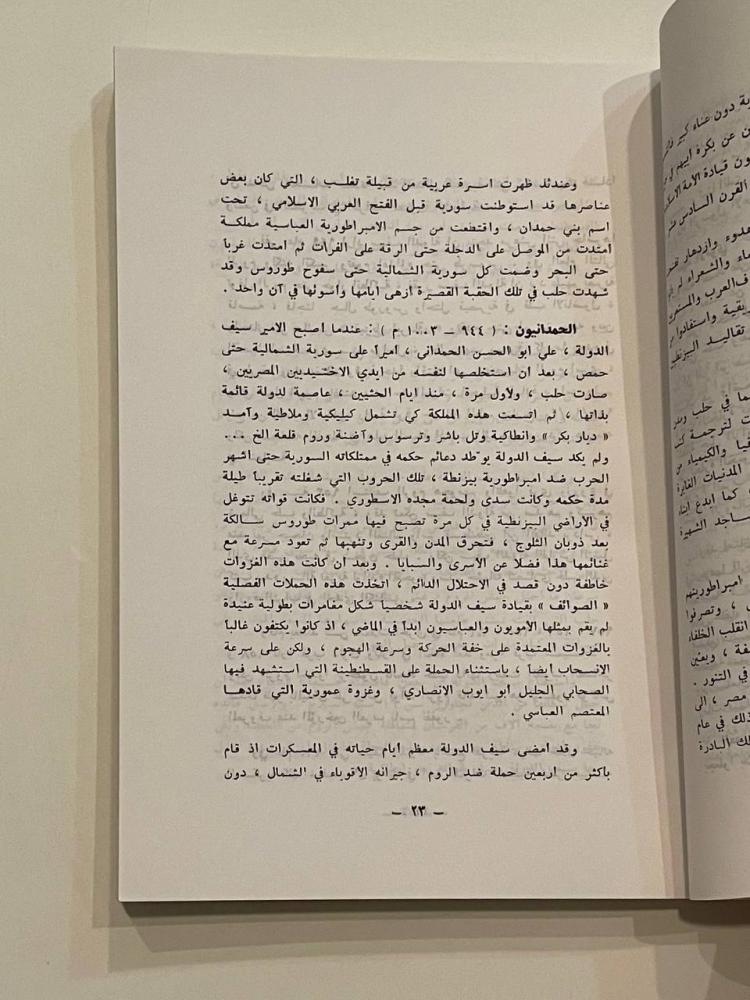 وعندئذ ظهرت اسرة عربية من قبيلة تغلب ، التي كان بعض
عناصرها قد استوطنت سورية قبل الفتح العربي الاسلامي ، تحت
اسم بني حمدان ، واقتطعت من جسم الامبراطورية العباسية مملكة
امتدت من الموصل على الدجلة حتى الرقة على الفرات ثم امتدت غرباً
حتى البحر وضمت كل سورية الشمالية حتى سفوح طوروس وقد
شهدت حلب في تلك الحقبة القصيرة ازهى ايامها واسوئها في آن واحد .
الحمدانيون : ( ٩٤٤ – ١٠٠٣ م ) : عندما اصبح الامير سيف
الدولة ، علي ابو الحسن الحمداني ، اميراً على سورية الشمالية حتى
حمص ، بعد ان استخلصها لنفسه من ايدي الاخشيديين المصريين ،
صارت حلب ، ولاول مرة ، منذ ايام الحثيين ، عاصمة لدولة قائمة
بذاتها ، ثم اتسعت هذه المملكة كي تشمل كيليكية وملاطية وآمد
« ديار بكر » وانطاكية وتل باشر وترسوس وآضنة وروم قلعة الخ ...
ولم يكد سيف الدولة يوطد دعائم حكمه في ممتلكاته السورية حتى اشهر
الحرب ضد امبراطورية بيزنطة ، تلك الحروب التي شغلته تقريباً طيلة
مدة حكمه وكانت سدى ولحمة مجده الاسطوري . فكانت قواته تتوغل
في الاراضي البيزنطية في كل مرة تصبح فيها ممرات طوروس سالكة
بعد ذوبان الثلوج ، فتحرق المدن والقرى وتنهبها ثم تعود مسرعة مع
غنائمها هذا فضلا عن الاسرى والسبايا . وبعد ان كانت هذه الغزوات
خاطفة دون قصد في الاحتلال الدائم ، اتخذت هذه الحملات الفصلية
« الصوائف » بقيادة سيف الدولة شخصياً شكل مغامرات بطولية عنيدة
لم يقم بمثلها الامويون والعباسيون ابداً في الماضي ، اذ كانوا يكتفون غالباً
بالغزوات المعتمدة على خفة الحركة وسرعة الهجوم ، ولكن على سرعة
الانسحاب ايضاً ، باستثناء الحملة على القسطنطينة التي استشهد فيها
الصحابي الجليل ابو ايوب الانصاري ، وغزوة عمورية التي قادها
المعتصم العباسي .
وقد امضى سيف الدولة معظم ايام حياته في المعسكرات اذ قام
باكثر من اربعين حملة ضد الروم ، جيرانه الاقوياء في الشمال ، دون
– ٢٣ –
دون عناء كبير
عن بكرة ابيهم
قيادة الامة
القرن السادس
هدوء وازدهار
والشعراء
العرب
واستفادوا
تقاليد
في حلب
لترجمة
والكيمياء
المدنيات الغابرة
كما ابدع ابناء
الشهيرة
امبراطوريتهم
، وتصرفوا
انقلب الخلفاء
، وبعين
في التنور .
مصر ، الى
ذلك في عام
البادرة